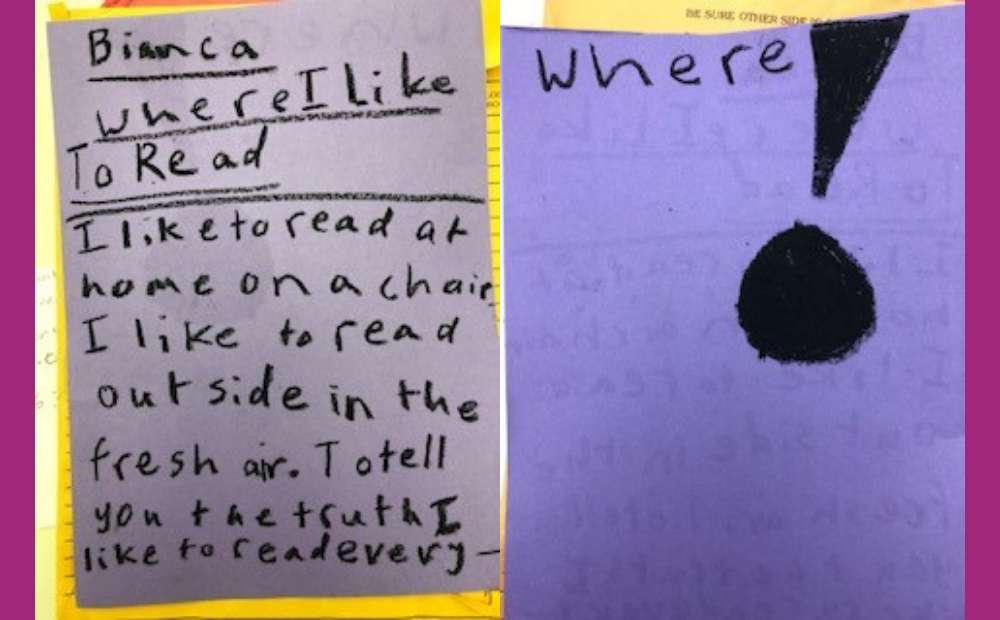 Bianca
where I like
To Read
I like to read at
home on a chair
I like to read
out side in the
fresh air. To tell
you the truth I
like to read every-
BE SURE OTHER SIDE
where!